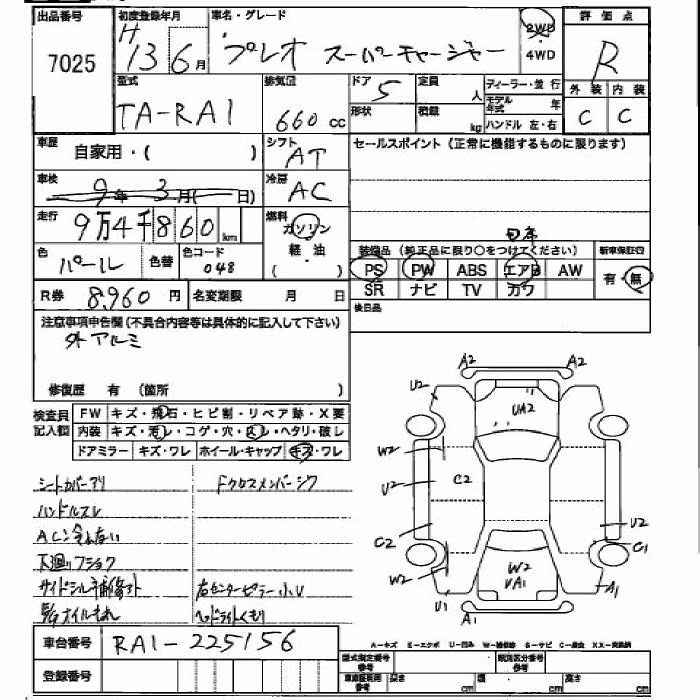 出品番号 初度登録年月 車名・グレード 評価点
7025 H13 6月 プレオ スーパーチャージャー 2WD ・ 4WD R
型式 排気図 ドア 定員 ディーラー・並 行 外装 内装
TA-RA1 660 cc 5 人 モデル年式 年 C C
形状 積載 kg ハンドル 左・右
車歴 自家用・( ) シフト AT セールスポイント(正常に機能するものに限ります)
車検 9年 3月( 日) 冷房 AC
走行 9万4千860 km 燃料 ガソリン 軽・油 ( )
装備品(純正品に限り○をつけてください) 新車保証書
色 パール 色替 色コード 048 PS PW ABS エアB AW 有・無
R券 8,960 円 名変期限 月 日 SR ナビ TV カワ
後日品
注意事項申告欄(不具合内容等は具体的に記入して下さい)
外アルミ
修復歴 有 (箇所 )
検査員記入欄 FW キズ・飛石・ヒビ割・リペア跡・X要
内装 キズ・汚レ・コゲ・穴・スレ・ヘタリ・破レ
ドアミラー キズ・ワレ ホイール・キャップ キズ・ワレ
シートカバーアリ Fクロスメンバーシワ
ハンドルスレ
ACン冷えない
下廻りフショク
サイドシル補修跡 右センターピラー小U
オイルもれ ヘッドライトくもり
A2 A2
U2 UA2
W2
U2 C2
C2 U2
C1
W2 W2
UA1 A1
U1 A1
車台番号 RA1-225156
A-キズ E-エクボ U-凹み W-補修跡 S-サビ C-腐食 XX-交換済
登録番号 型式指定番号参考 類別区分番号参考
車庫証明用参考 長さ cm 幅 cm 高さ cm